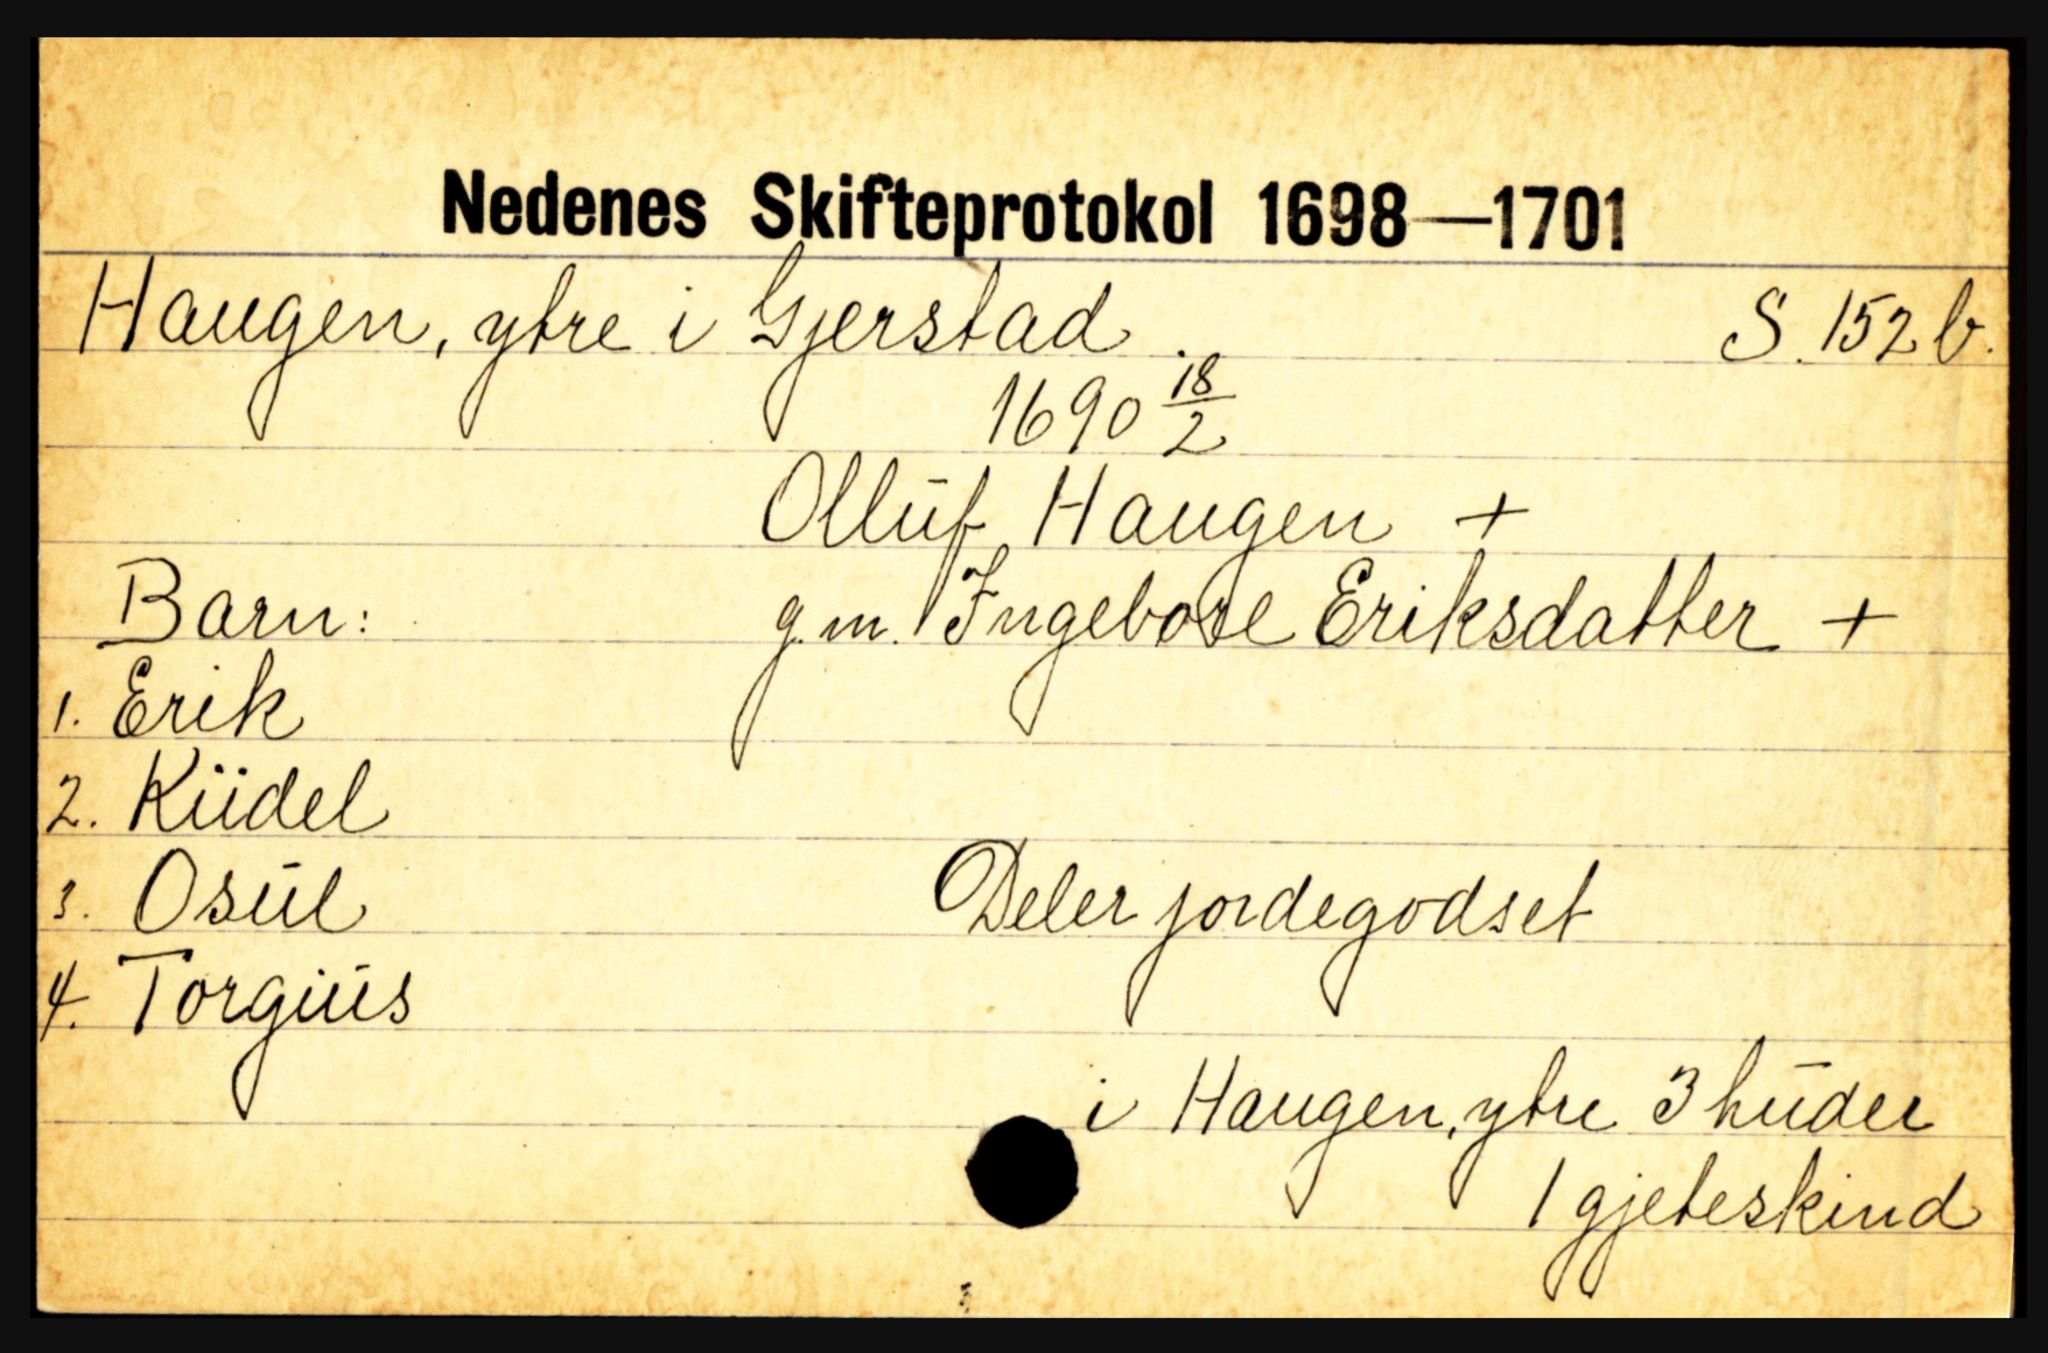 Nedenes Skifteprotokol 1698—1701
Haugen, ytre i Gjerstad. S. 152 b.
1690 18/2
Olluf Haugen +
Barn: g.m. Ingeborl Eriksdatter +
1. Erik
2. Küdel
3. Osūl Deler jordegodset
4. Torgiūs
i Haugen, ytre 3 hūder
1 gjeteskind